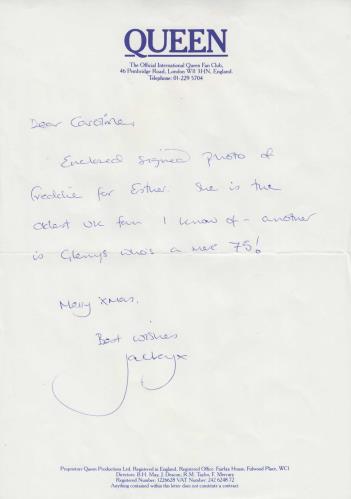 QUEEN
The Official International Queen Fan Club,
46 Pembridge Road, London W11 3HN, England.
Telephone: 01-229 5704
Dear Caroline,
Enclosed signed photo of
Freddie for Esther. She is the
oldest UK fan I know of - another
is Glenys who's a mere 75!
Merry Xmas.
Best wishes
Jacky x
Proprietor Queen Productions Ltd. Registered in England. Registered Office: Fairfax House, Fulwood Place, WC1
Directors: B.H. May, J. Deacon, R.M. Taylor, F. Mercury
Registered Number: 1226628 VAT Number: 242 6248 72
Anything contained within this letter does not constitute a contract